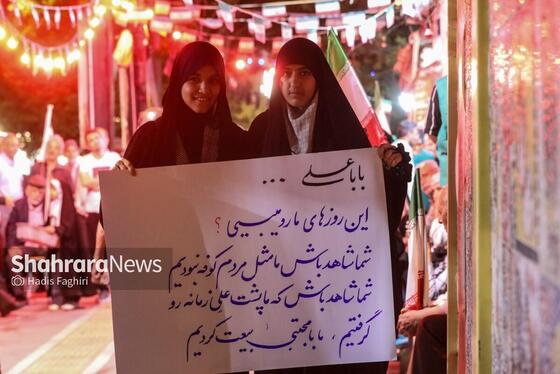 بابا علی ...
این روزهای ما رو میبینی ؟
شما شاهد باش ما مثل مردم کوفه نبودیم
شما شاهد باش که ما پشت علی زمانه رو
گرفتیم ، ما با مجتبی بیعت کردیم
ShahraraNews
Hadis Faghiri